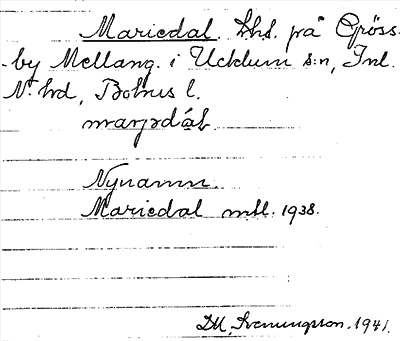 Mariedal. Lhs. på Gröss-
by Mellang. i Ucklum s:n, Inl.
N. hd, Bohus l.
marjədáḷ.
Nynamn.
Mariedal mtl. 1938.
D.M. Svenungsson. 1941.